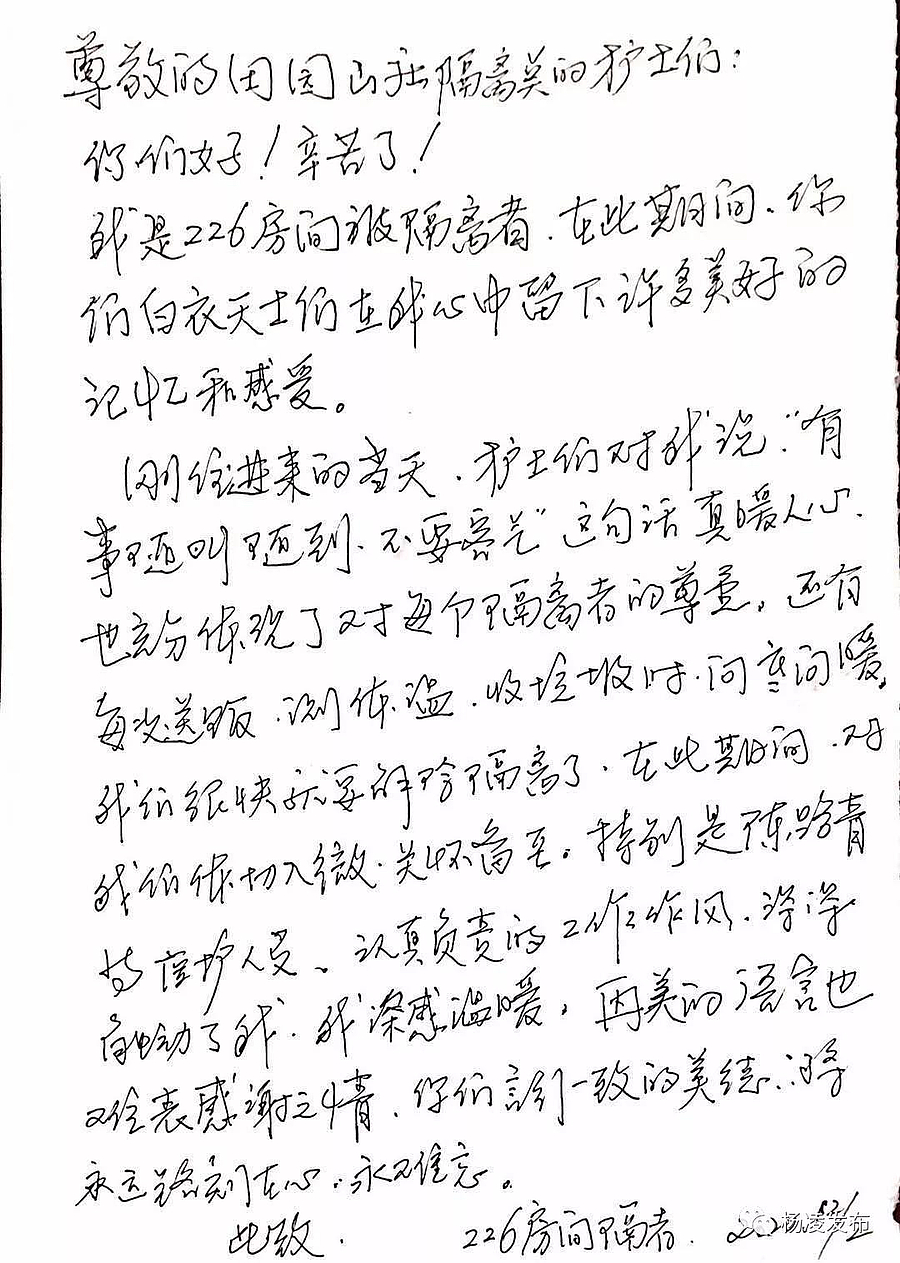 尊敬的田园山社隔离点的护士们:
你们好!辛苦了!
我是226房间被隔离者.在此期间.你
们白衣天士们在我心中留下许多美好的
记忆和感爱。
刚住进来的当天.护士们对我说"有
事随叫随到.不要客气"这句话真暖人心.
也充分体现了对每个隔离者的尊重。还有
每次送饭.测体温.收垃圾时.问寒问暖。
我们很快就要解除隔离了.在此期间.对
我们体切入微.关怀备至。特别是陈路青
医护人员、认真负责的工作作风.深深
触动了我.我深感温暖。再美的语言也
难表感谢之情.你们言行一致的美德.将
永远铭刻在心.永不难忘。
此致. 226房间隔者.
杨凌发布